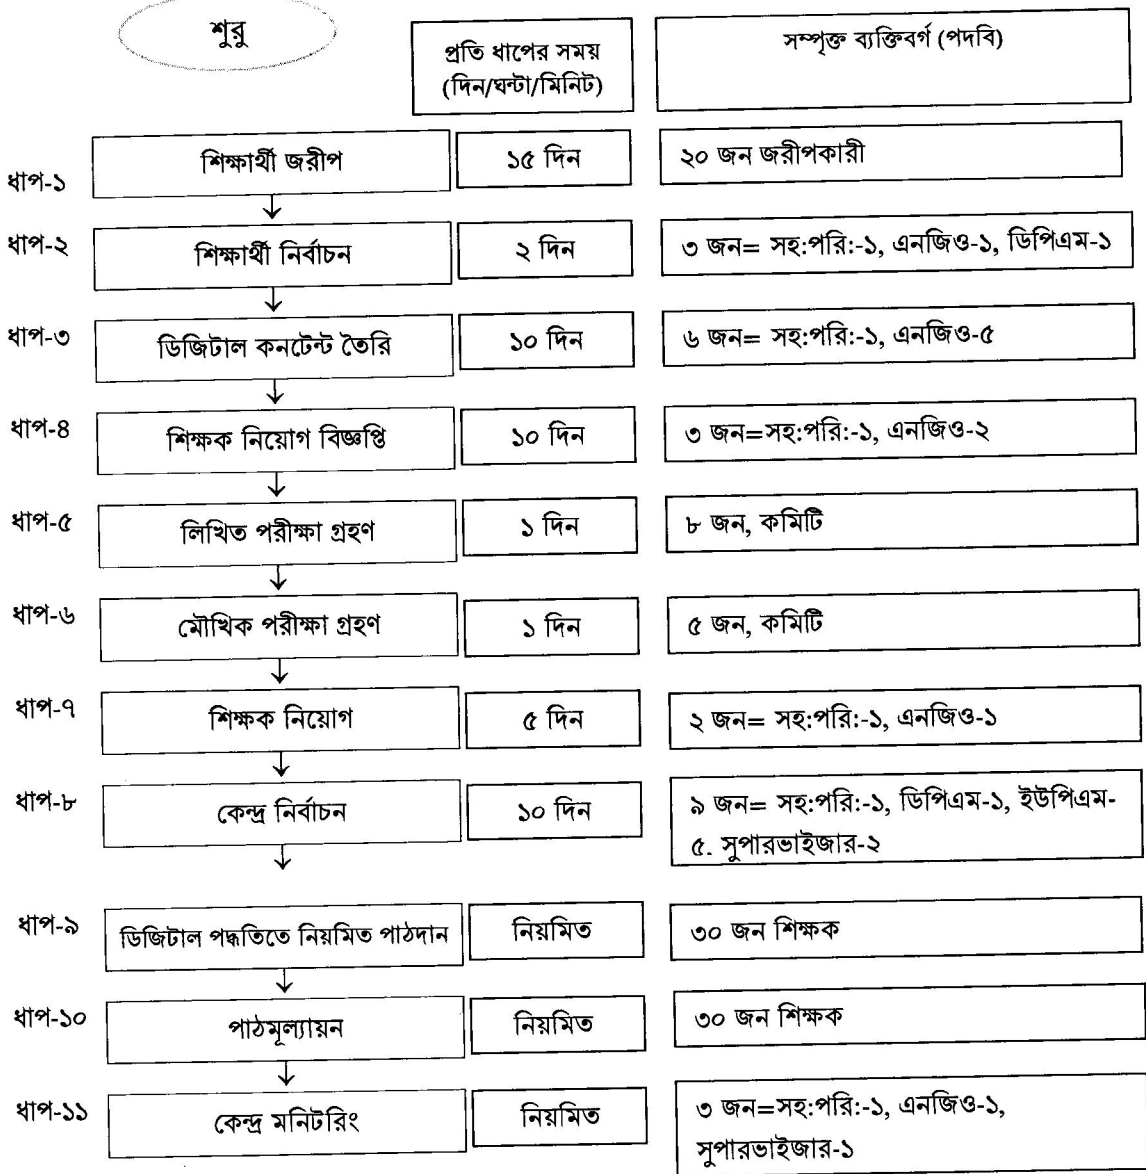 শুরু
প্রতি ধাপের সময়
(দিন/ঘন্টা/মিনিট)
সম্পৃক্ত ব্যক্তিবর্গ (পদবি)
ধাপ-১ শিক্ষার্থী জরীপ ১৫ দিন ২০ জন জরীপকারী
ধাপ-২ শিক্ষার্থী নির্বাচন ২ দিন ৩ জন= সহ:পরি:-১, এনজিও-১, ডিপিএম-১
ধাপ-৩ ডিজিটাল কনটেন্ট তৈরি ১০ দিন ৬ জন= সহ:পরি:-১, এনজিও-৫
ধাপ-৪ শিক্ষক নিয়োগ বিজ্ঞপ্তি ১০ দিন ৩ জন=সহ:পরি:-১, এনজিও-২
ধাপ-৫ লিখিত পরীক্ষা গ্রহণ ১ দিন ৮ জন, কমিটি
ধাপ-৬ মৌখিক পরীক্ষা গ্রহণ ১ দিন ৫ জন, কমিটি
ধাপ-৭ শিক্ষক নিয়োগ ৫ দিন ২ জন= সহ:পরি:-১, এনজিও-১
ধাপ-৮ কেন্দ্র নির্বাচন ১০ দিন ৯ জন= সহ:পরি:-১, ডিপিএম-১, ইউপিএম-
৫. সুপারভাইজার-২
ধাপ-৯ ডিজিটাল পদ্ধতিতে নিয়মিত পাঠদান নিয়মিত ৩০ জন শিক্ষক
ধাপ-১০ পাঠমূল্যায়ন নিয়মিত ৩০ জন শিক্ষক
ধাপ-১১ কেন্দ্র মনিটরিং নিয়মিত ৩ জন=সহ:পরি:-১, এনজিও-১,
সুপারভাইজার-১